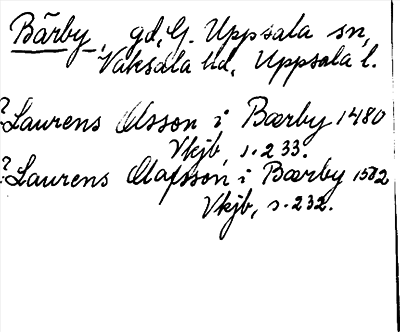 Bärby, gd, G. Uppsala sn,
Vaksala hd, Uppsala l.
? Laurens Olsson i Bærby 1480
Vkjb, s. 233.
? Laurens Olafsson i Bærby 1502
Vkjb, s. 232.